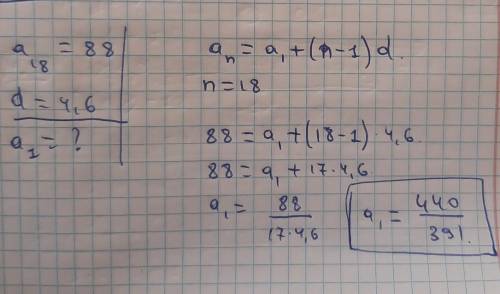 a₁₈ = 88
d = 4,6
a₁ = ?
aₙ = a₁ + (n-1) d.
n = 18
88 = a₁ + (18-1) · 4,6.
88 = a₁ + 17 · 4,6
a₁ = 88 / 17·4,6
a₁ = 440 / 391.